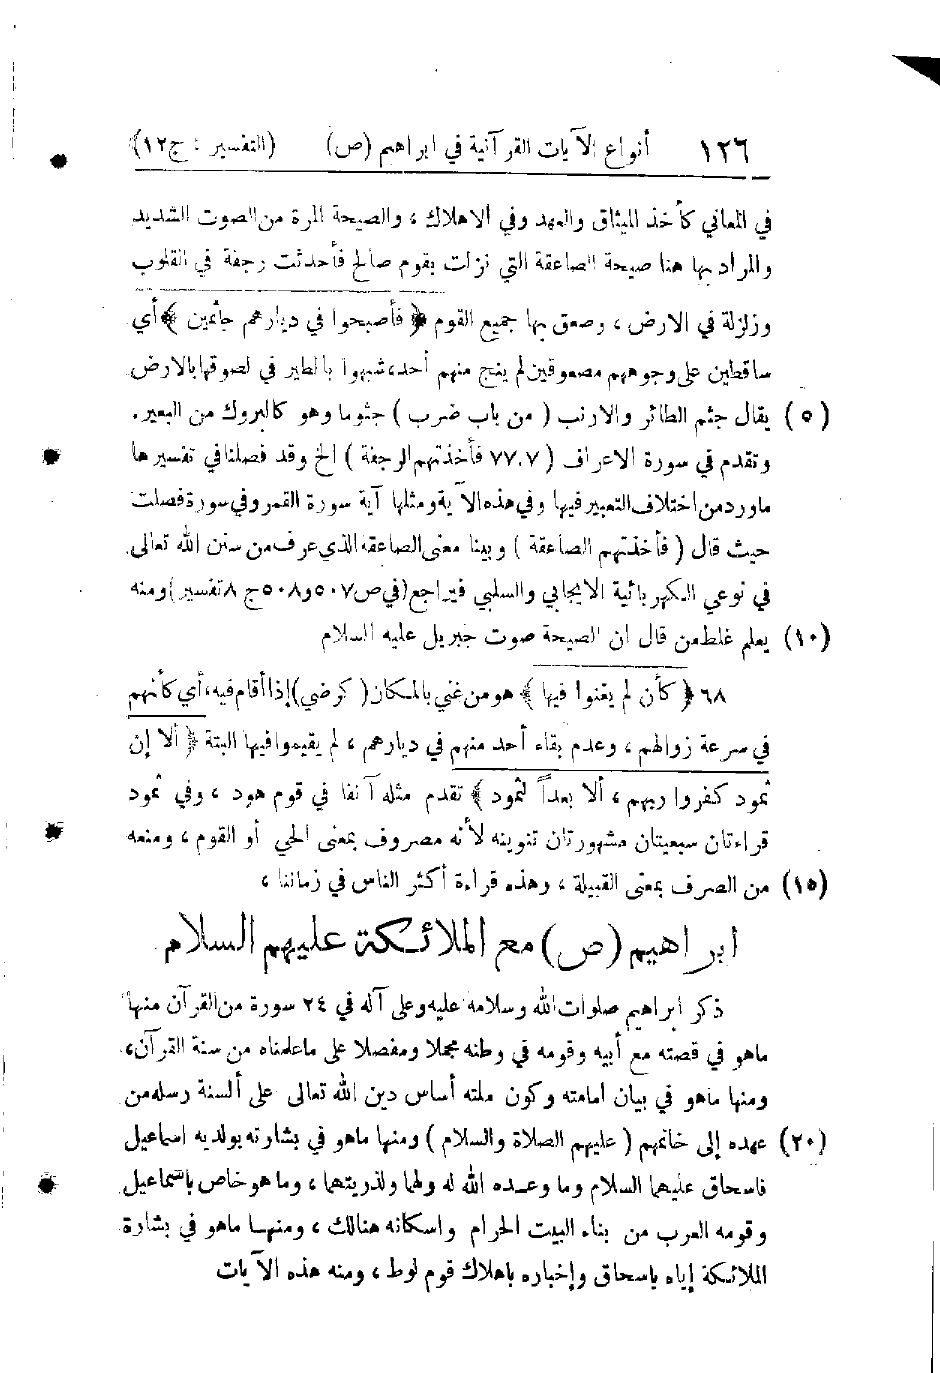 ١٢٦ أنواع الآيات القرآنية في ابراهيم (ص) (التفسير : ج١٢)
في المعاني كأخذ الميثاق والعهد وفي الاهلاك ، والصيحة المرة من الصوت الشديد
والمراد بها هنا صيحة الصاعقة التي نزلت بقوم صالح فأحدثت رجفة في القلوب
وزلزلة في الارض ، وصعق بها جميع القوم ﴿ فأصبحوا في ديارهم جاثمين ﴾ أي
ساقطين على وجوههم مصعوقين لم ينج منهم أحد، شبهوا بالطير في لصوقها بالارض
(٥) يقال جثم الطائر والارنب ( من باب ضرب ) جثوما وهو كالبروك من البعير.
وتقدم في سورة الاعراف ( ٧٧.٧ فأخذتهم الرجفة ) الخ وقد فصلنا في تفسيرها
ماورد من اختلاف التعبير فيها وفي هذه الآية ومثلها آية سورة القمر وفي سورة فصلت
حيث قال ( فأخذتهم الصاعقة ) وبينا معنى الصاعقة الذي عرف من سنن الله تعالى
في نوعي الكهربائية الايجابي والسلبي فيراجع (في ص ٥٠٧ و ٥٠٨ ج ٨ تفسير) ومنه
(١٠) يعلم غلط من قال ان الصيحة صوت جبريل عليه السلام
٦٨ ﴿ كأن لم يغنوا فيها ﴾ هو من غني بالمكان ( كرضي) إذا أقام فيه، أي كأنهم
في سرعة زوالهم ، وعدم بقاء أحد منهم في ديارهم ، لم يقيموا فيها البتة ﴿ ألا إن
ثمود كفروا ربهم ، ألا بعداً لثمود ﴾ تقدم مثله آنفا في قوم هود ، وفي ثمود
قراءتان سبعيتان مشهورتان تنوينه لأنه مصروف بمعنى الحي أو القوم ، ومنعه
(١٥) من الصرف بمعنى القبيلة ، وهذه قراءة أكثر الناس في زماننا ،
ابراهيم (ص) مع الملائكة عليهم السلام
ذكر ابراهيم صلوات الله وسلامه عليه وعلى آله في ٢٤ سورة من القرآن منها
ماهو في قصته مع أبيه وقومه في وطنه مجملا ومفصلا على ماعلمناه من سنة القرآن،
ومنها ماهو في بيان امامته وكون ملته أساس دين الله تعالى على ألسنة رسله من
(٢٠) عهده إلى خاتمهم ( عليهم الصلاة والسلام ) ومنها ماهو في بشارته بولديه اسماعيل
فاسحاق عليهما السلام وما وعده الله له ولهما ولذريتهما ، وما هو خاص باسماعيل
وقومه العرب من بناء البيت الحرام واسكانه هنالك ، ومنها ماهو في بشارة
الملائكة إياه باسحاق وإخباره باهلاك قوم لوط ، ومنه هذه الآيات